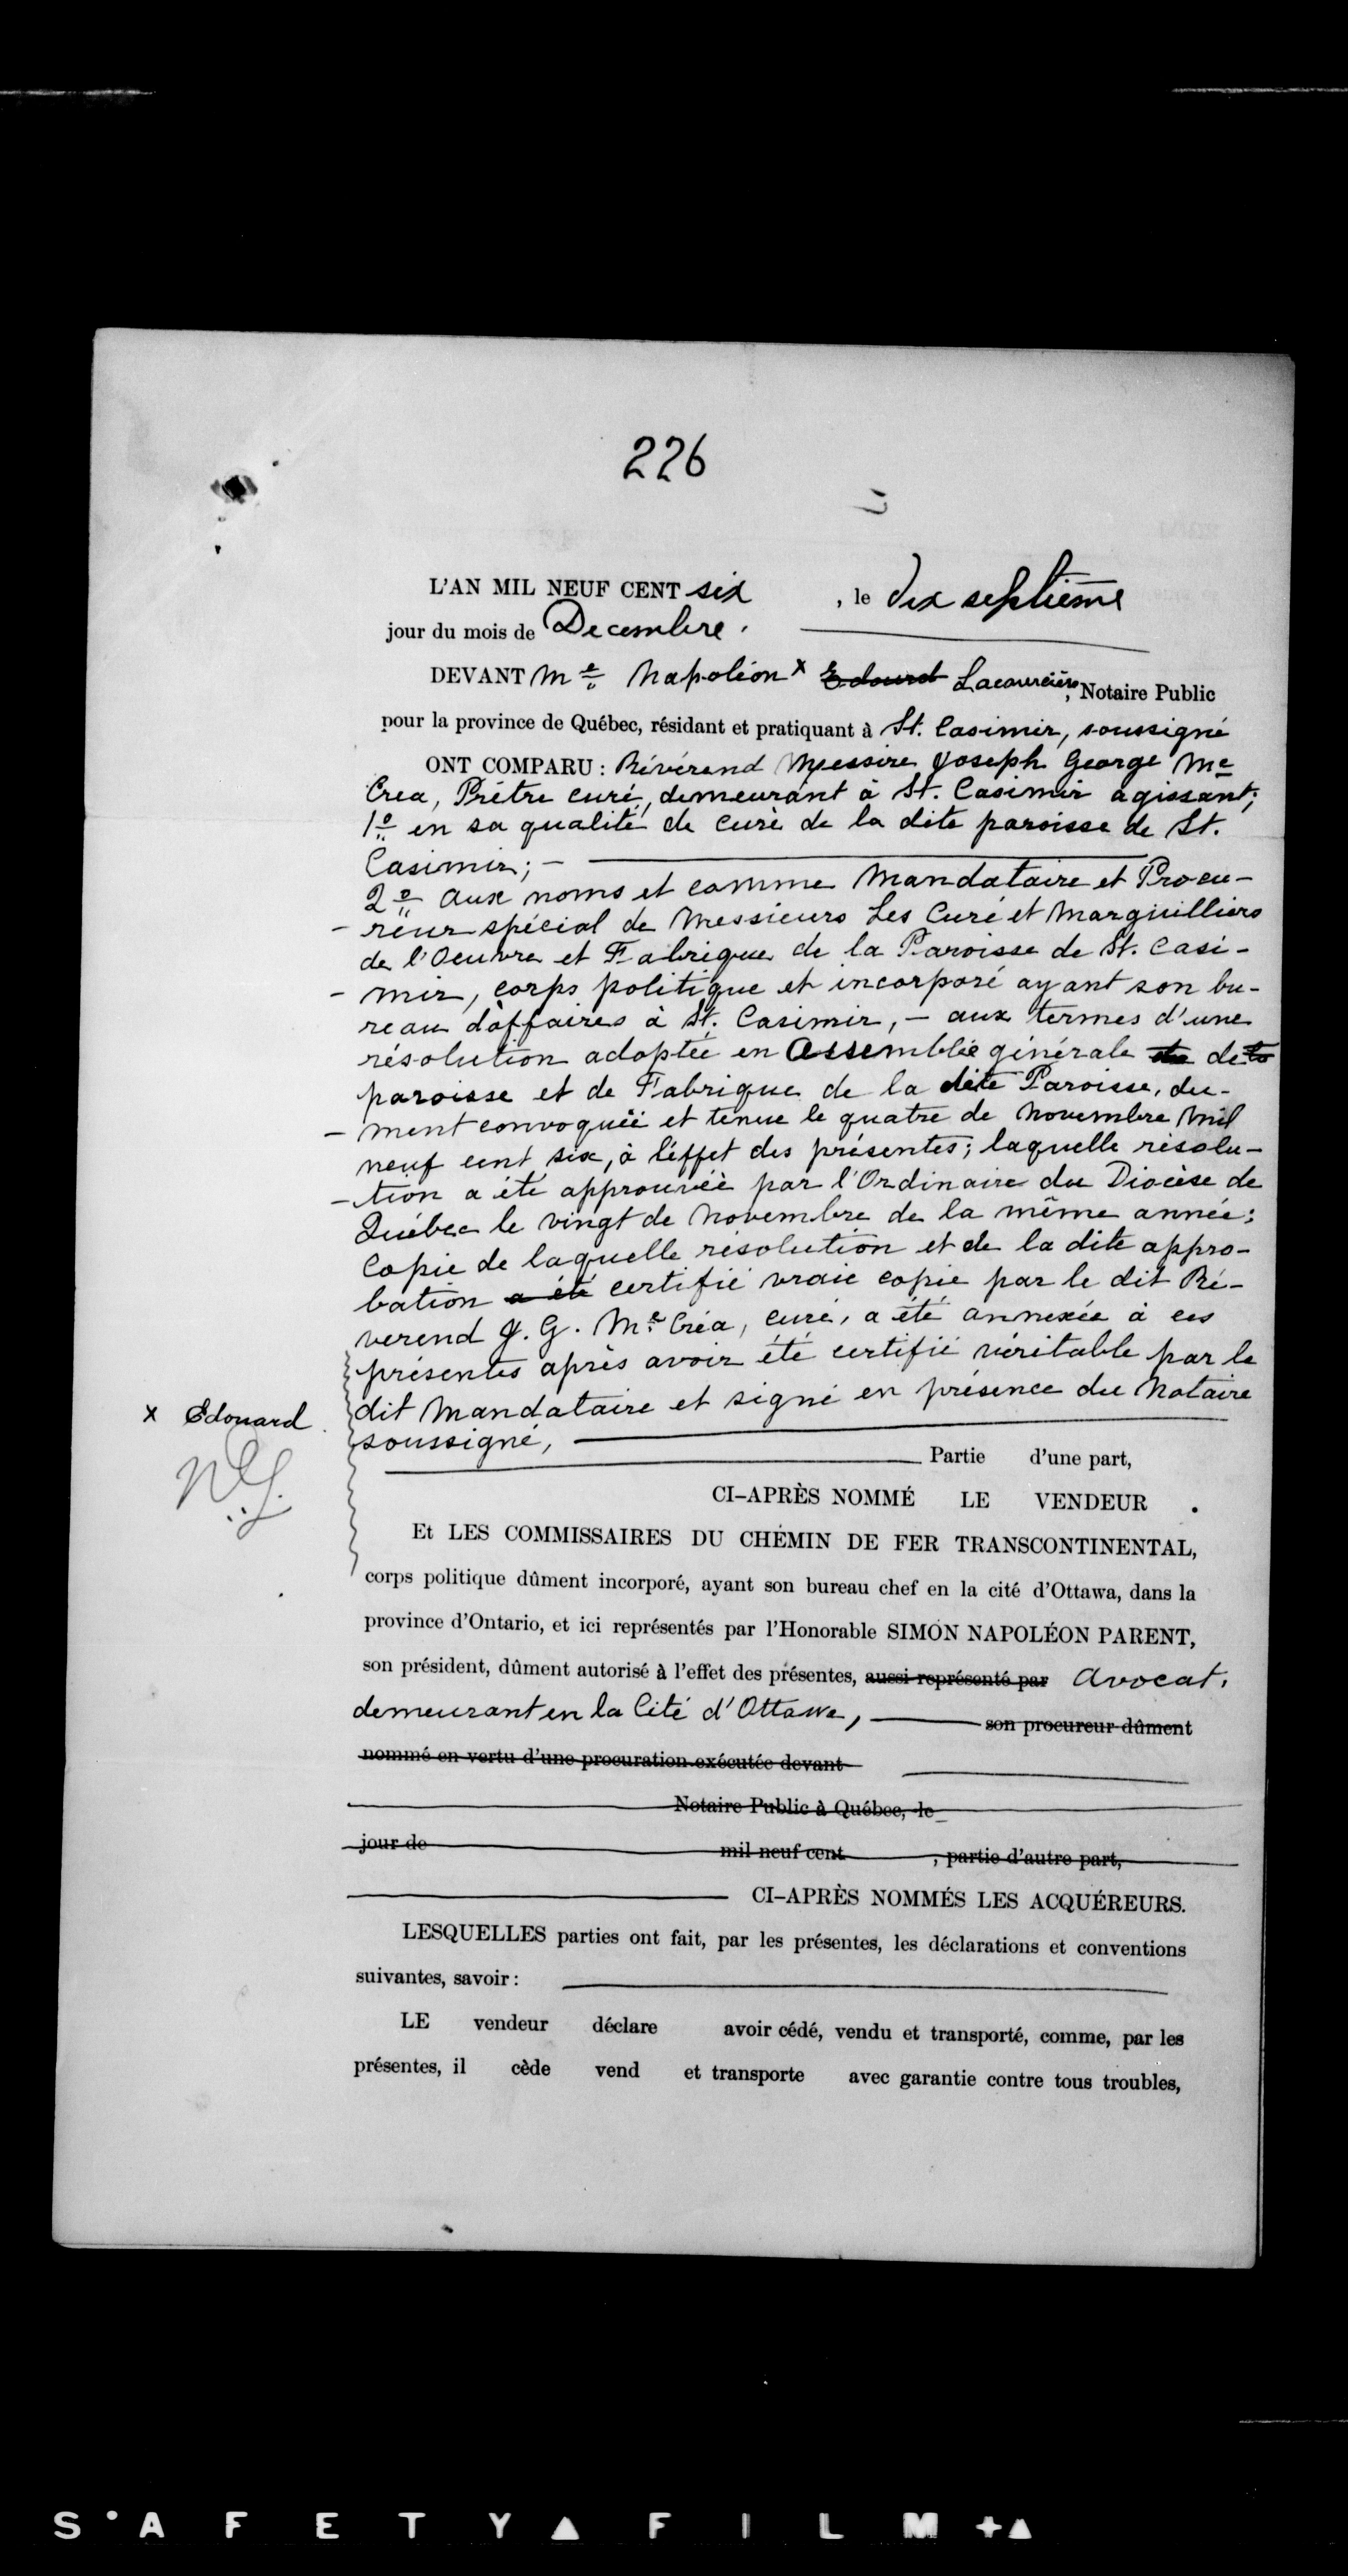 226
L'AN MIL NEUF CENT six , le dix septième
jour du mois de Decembre.
DEVANT Me Napoléon x Edourd Lacourcière, Notaire Public
pour la province de Québec, résidant et pratiquant à St. Casimir, soussigné
ONT COMPARU : Révérend Messire Joseph George Mc
Crea, Prêtre curé, demeurant à St. Casimir agissant;
1o en sa qualité de curé de la dite paroisse de St.
Casimir; -
2o Aux noms et comme Mandataire et Procu-
- reur spécial de Messieurs Les Curé et Marguilliers
de l'Oeuvre et Fabrique de la Paroisse de St. Casi-
- mir, corps politique et incorporé ayant son bu-
reau d'affaires à St. Casimir, - aux termes d'une
résolution adoptée en Assemblée générale de
paroisse et de Fabrique de la dite Paroisse, du-
- ment convoquée et tenue le quatre de Novembre mil
neuf cent six, à l'effet des présentes; laquelle résolu-
- tion a été approuvée par l'Ordinaire du Diocèse de
Québec le vingt de Novembre de la même année;
Copie de laquelle résolution et de la dite appro-
bation a été certifié vraie copie par le dit Ré-
verend J. G. Mc Créa, curé, a été annexée à ces
présentes après avoir été certifié véritable par le
dit Mandataire et signé en présence du Notaire
x Edouard
soussigné,
Partie d'une part,
CI-APRÈS NOMMÉ LE VENDEUR .
Et LES COMMISSAIRES DU CHEMIN DE FER TRANSCONTINENTAL,
corps politique dûment incorporé, ayant son bureau chef en la cité d'Ottawa, dans la
province d'Ontario, et ici représentés par l'Honorable SIMON NAPOLÉON PARENT,
son président, dûment autorisé à l'effet des présentes, aussi représenté par Avocat,
demeurant en la Cité d'Ottawa, son procureur dûment
nommé en vertu d'une procuration exécutée devant
Notaire Public à Québec, le
jour de mil neuf cent , partie d'autre part,
CI-APRÈS NOMMÉS LES ACQUÉREURS.
LESQUELLES parties ont fait, par les présentes, les déclarations et conventions
suivantes, savoir :
LE vendeur déclare avoir cédé, vendu et transporté, comme, par les
présentes, il cède vend et transporte avec garantie contre tous troubles,
S·AFETY▲FILM+▲